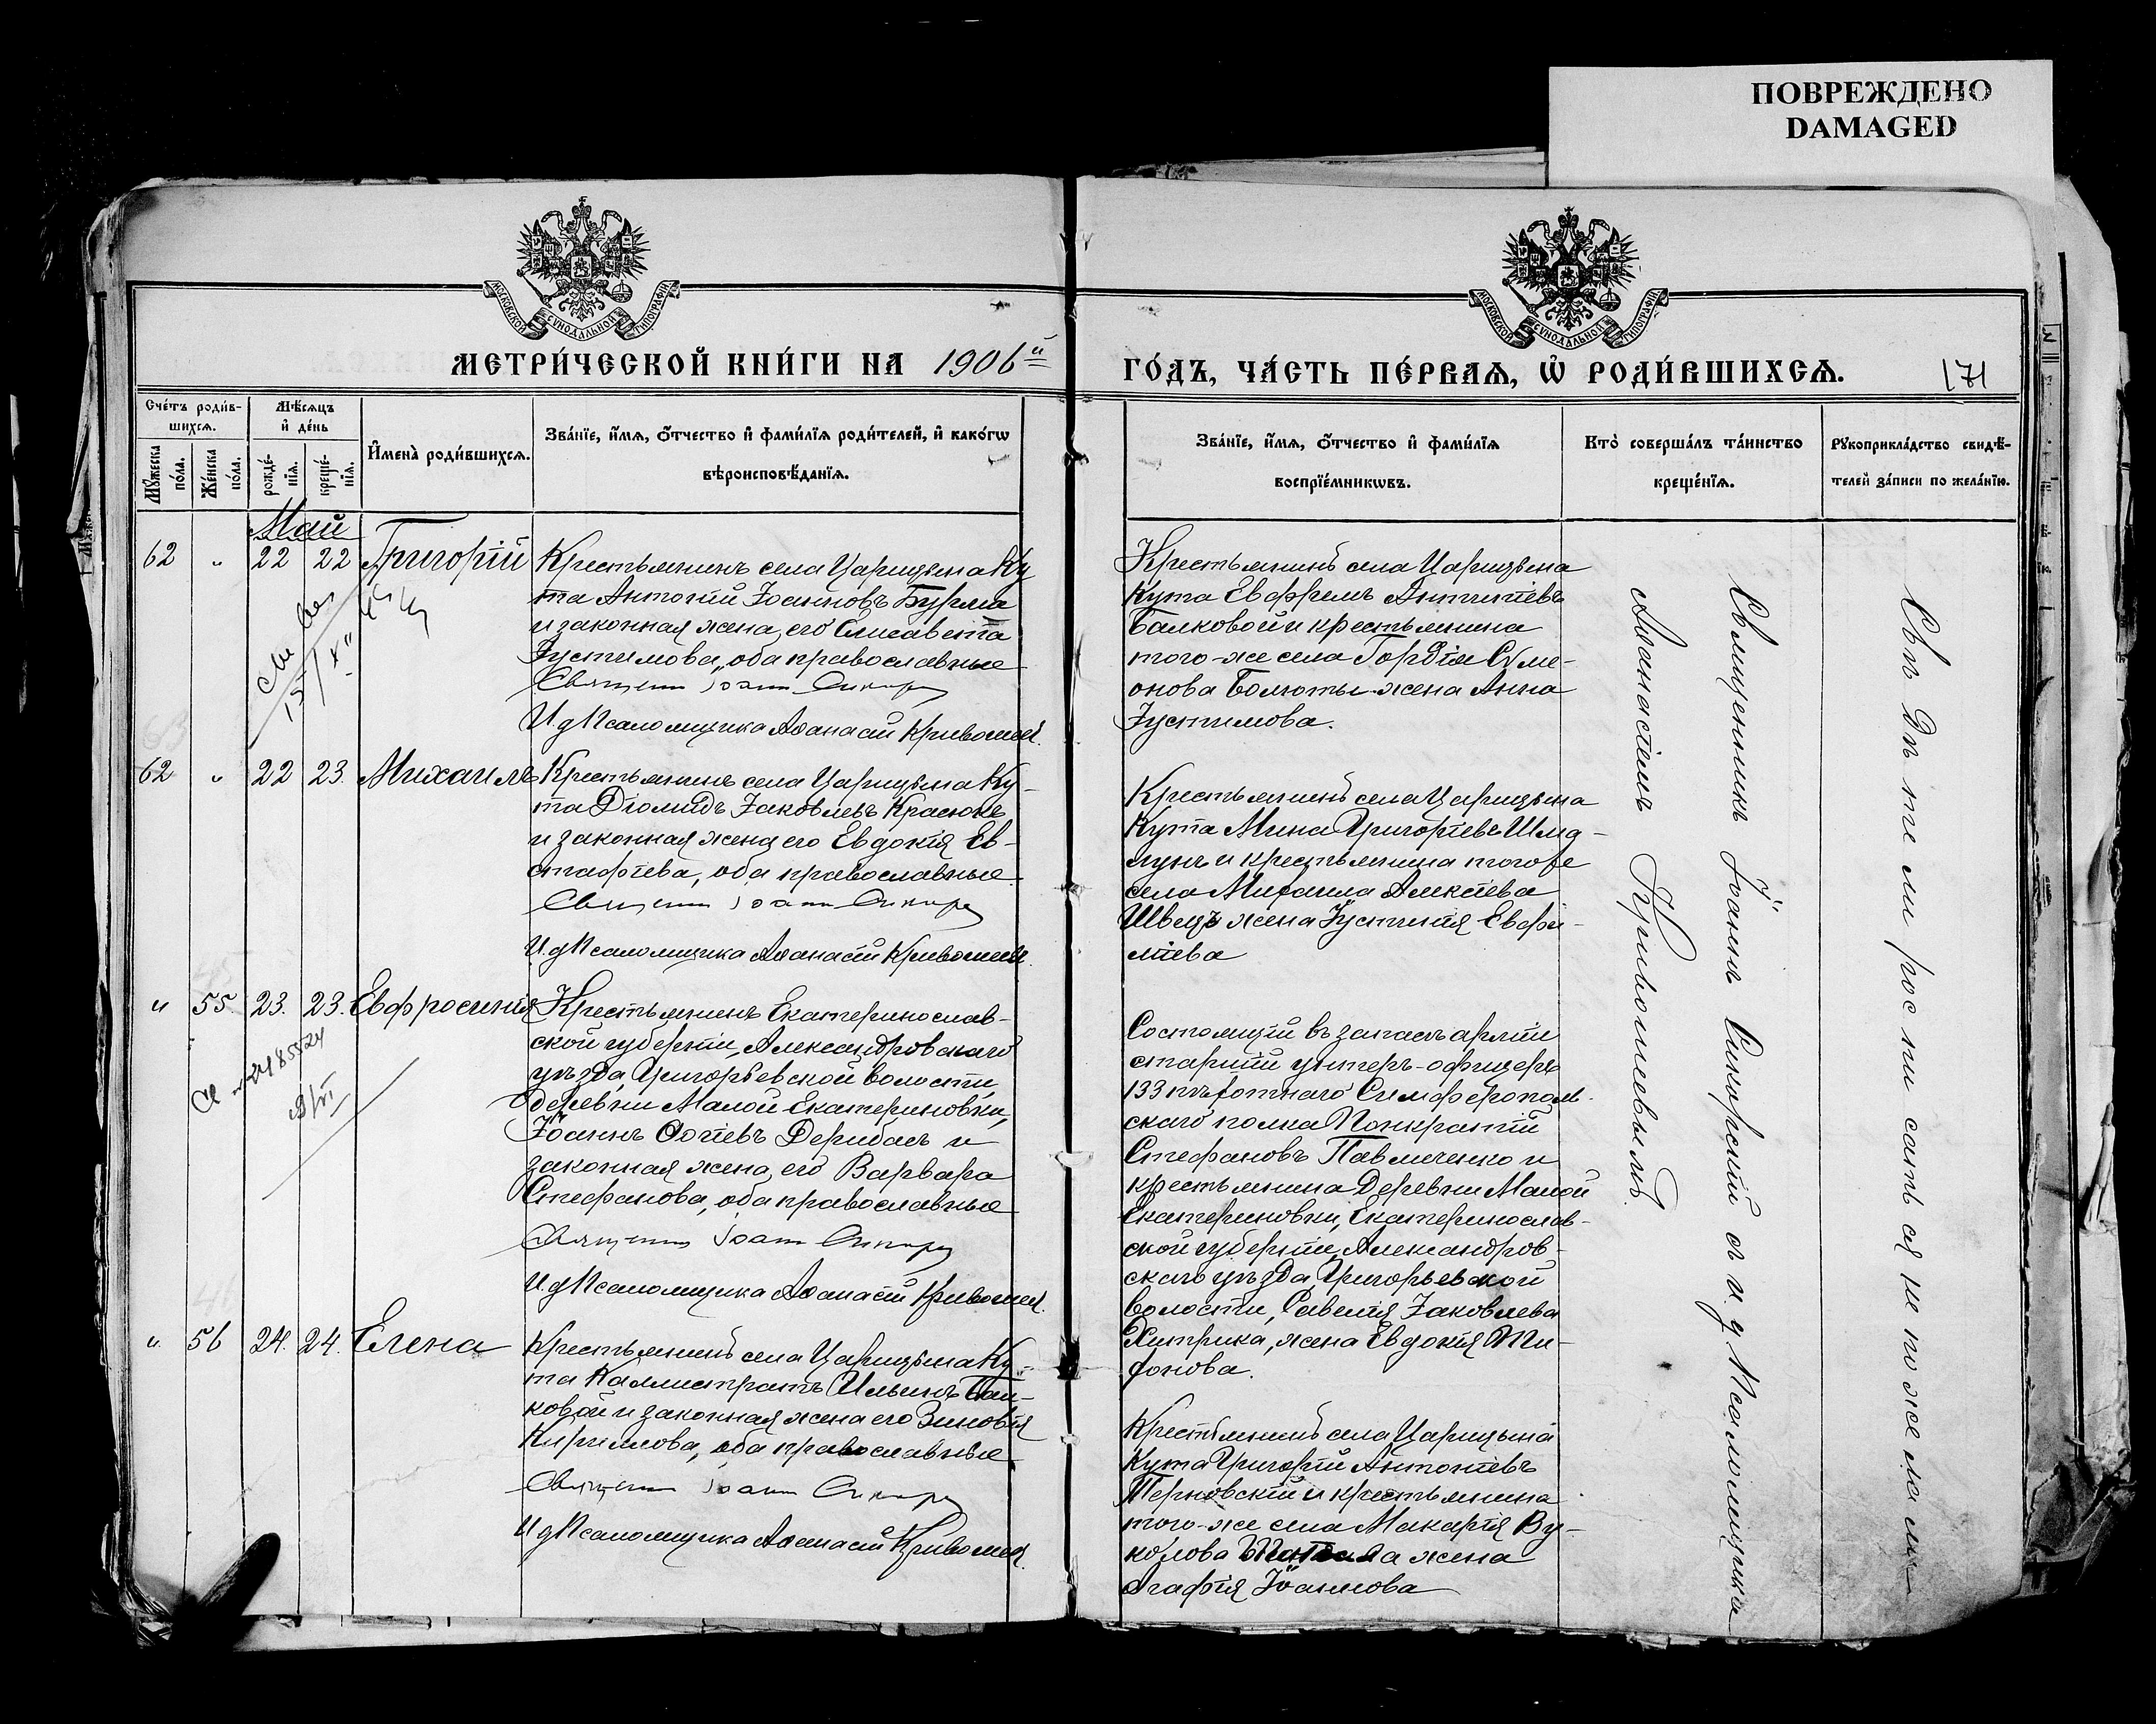 ПОВРЕЖДЕНО
DAMAGED
МОСКОВСКОЙ СѴНОДАЛЬНОЙ ТИПОГРАФІИ
МОСКОВСКОЙ СѴНОДАЛЬНОЙ ТИПОГРАФІИ
МЕТРИЧЕСКОЙ КНИГИ НА 1906й
ГОДЪ, ЧАСТЬ ПЕРВАѦ, Ѡ РОДИВШИХСѦ.
171
Счетъ родившихсѧ.
Мужеска пола.
Женска пола.
Мѣсѧцъ и день
рожденіѧ.
крещеніѧ.
Имена родившихсѧ.
Званіе, имѧ, отчество и фамиліѧ родителей, и какогѡ
вѣроисповѣданіѧ.
Званіе, имѧ, отчество и фамиліѧ
воспріемникѡвъ.
Кто совершалъ таинство
крещеніѧ.
Рукоприкладство свидѣ-
телей записи по желанію.
Май
62 " 22 22 Григорій
Крестьянинъ села Царицына Ку
та Антоній Іоанновъ Бурма
и законная жена его Елисавета
Іустинова, оба православные
Священ Іоанн
И д Псаломщика Аѳанасій Кривошея.
Крестьянинъ села Царицына
Кута Евфремъ Антипіевъ
Балковой и крестьянина
того-же села Гордія Сѵме-
онова Болюты жена Анна
Іустинова.
62 " 22 23. Михаилъ
Крестьянинъ села Царицына Ку-
та Діомидъ Іаковлевъ Краснокъ
и законная жена его Евдокія Ев-
стафіева, оба православные.
Священ Іоанн
И.д Псаломщика Аѳанасій Кривошея.
Крестьянинъ села Царицына
Кута Мина Григоріевъ
и крестьянина того же
села Михаила Алексіева
Швецъ жена Іустинія Евфи-
міева
" 55 23. 23. Евфросинія
Крестьянинъ Екатеринослав-
ской губерніи, Александровскаго
уѣзда, Григорьевской волости,
деревни Малой Екатериновки,
Іоаннъ Ѳотіевъ Дерибасъ и
законная жена его Варвара
Стефанова, оба православные
Священ Іоанн
И.д Псаломщика Аѳанасій Кривошея.
Состоящій въ запасѣ арміи
старшій унтеръ-офицеръ
133 пѣхотнаго Симферополь-
скаго полка Панкратій
Стефановъ Павличенко и
крестьянина Деревни Малой
Екатериновки, Екатеринослав-
ской губерніи, Александров-
скаго уѣзда, Григорьевской
волости, Савелія Іаковлева
Хитрика, жена Евдокія Три-
фонова.
" 56 24. 24. Елена
Крестьянинъ села Царицына Ку-
та Каллистратъ Ильинъ Бал-
ковой и законная жена его Зиновія
Кириллова, оба православные
Священ Іоанн
И д Псаломщика Аѳанасій Кривошея.
Крестьянинъ села Царицына
Кута Григорій Антоніевъ
Терновскій и крестьянина
того-же села Макарія Ву-
колова жена
Агафія Іоаннова
Священникъ Іоаннъ съ и.д. Псаломщика
Аѳанасіемъ Кривошеевымъ.
росписаться не пожелали